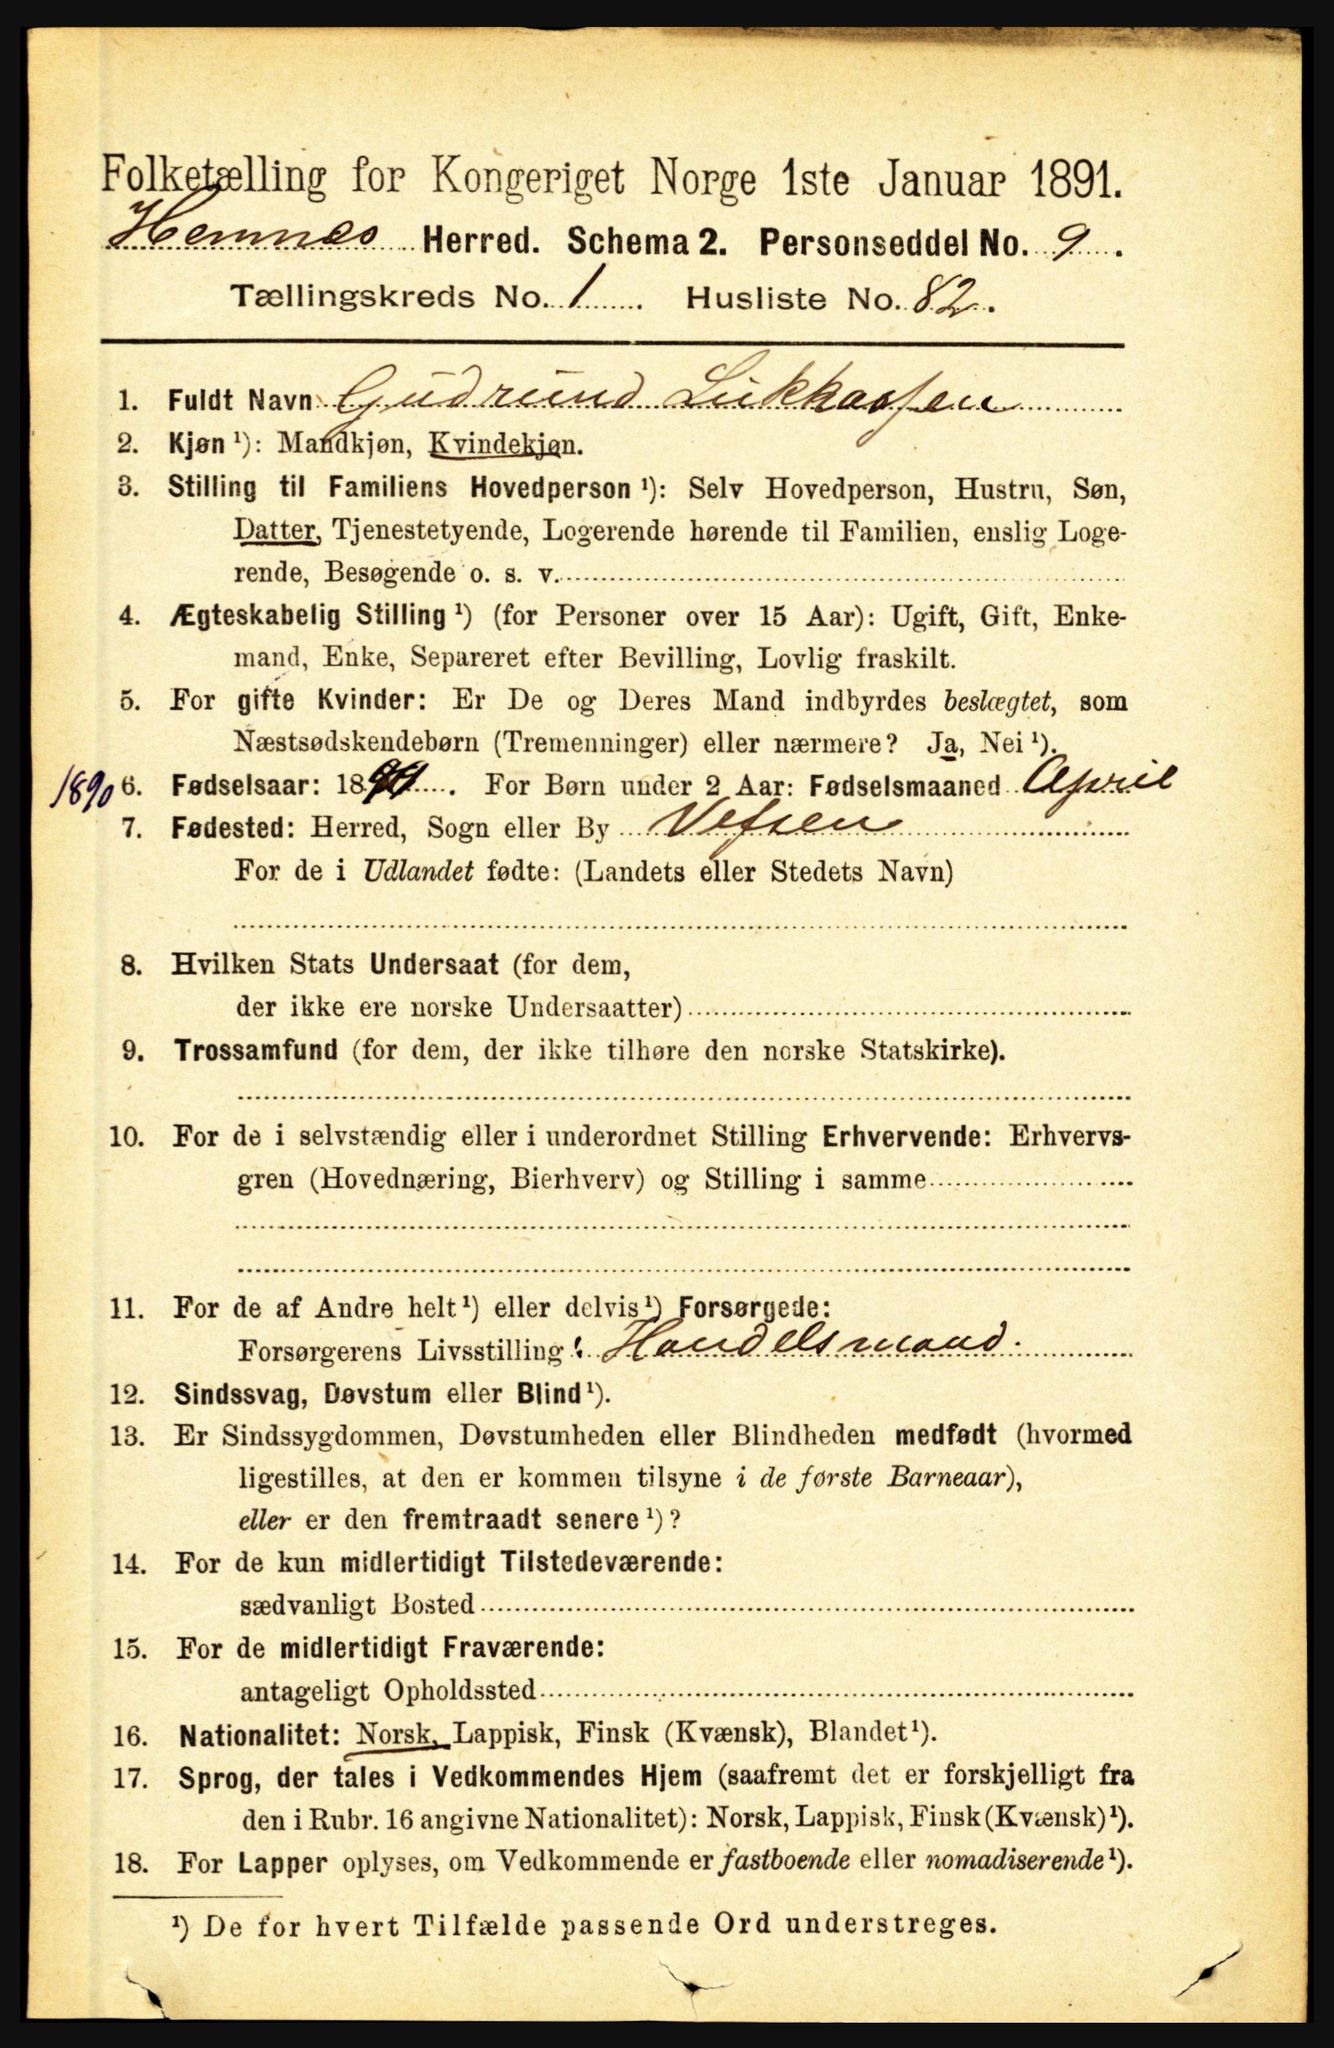 Folketælling for Kongeriget Norge 1ste Januar 1891.
Hemnes Herred. Schema 2. Personseddel No. 9.
Tællingskreds No. 1. Husliste No. 82.
1. Fuldt Navn Gudrund Lukkassen
2. Kjøn ¹): Mandkjøn, Kvindekjøn.
3. Stilling til Familiens Hovedperson ¹): Selv Hovedperson, Hustru, Søn,
Datter, Tjenestetyende, Logerende hørende til Familien, enslig Loge-
rende, Besøgende o. s. v.
4. Ægteskabelig Stilling ¹) (for Personer over 15 Aar): Ugift, Gift, Enke-
mand, Enke, Separeret efter Bevilling, Lovlig fraskilt.
5. For gifte Kvinder: Er De og Deres Mand indbyrdes beslægtet, som
Næstsødskendebørn (Tremenninger) eller nærmere? Ja, Nei ¹).
1890 6. Fødselsaar: 18 . For Børn under 2 Aar: Fødselsmaaned April
7. Fødested: Herred, Sogn eller By Vefsen
For de i Udlandet fødte: (Landets eller Stedets Navn)
8. Hvilken Stats Undersaat (for dem,
der ikke ere norske Undersaatter)
9. Trossamfund (for dem, der ikke tilhøre den norske Statskirke).
10. For de i selvstændig eller i underordnet Stilling Erhvervende: Erhvervs-
gren (Hovednæring, Bierhverv) og Stilling i samme
11. For de af Andre helt ¹) eller delvis ¹) Forsørgede:
Forsørgerens Livsstilling: Handelsmand.
12. Sindssvag, Døvstum eller Blind ¹).
13. Er Sindssygdommen, Døvstumheden eller Blindheden medfødt (hvormed
ligestilles, at den er kommen tilsyne i de første Barneaar),
eller er den fremtraadt senere ¹)?
14. For de kun midlertidigt Tilstedeværende:
sædvanligt Bosted
15. For de midlertidigt Fraværende:
antageligt Opholdssted
16. Nationalitet: Norsk, Lappisk, Finsk (Kvænsk), Blandet ¹).
17. Sprog, der tales i Vedkommendes Hjem (saafremt det er forskjelligt fra
den i Rubr. 16 angivne Nationalitet): Norsk, Lappisk, Finsk (Kvænsk) ¹).
18. For Lapper oplyses, om Vedkommende er fastboende eller nomadiserende ¹).
¹) De for hvert Tilfælde passende Ord understreges.